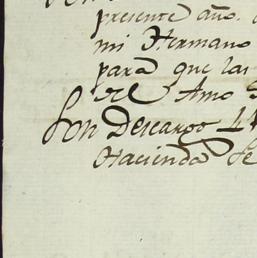 presente año.
mi Hermano
para que las
del Amo
Son Descargo 4
Hacienda de